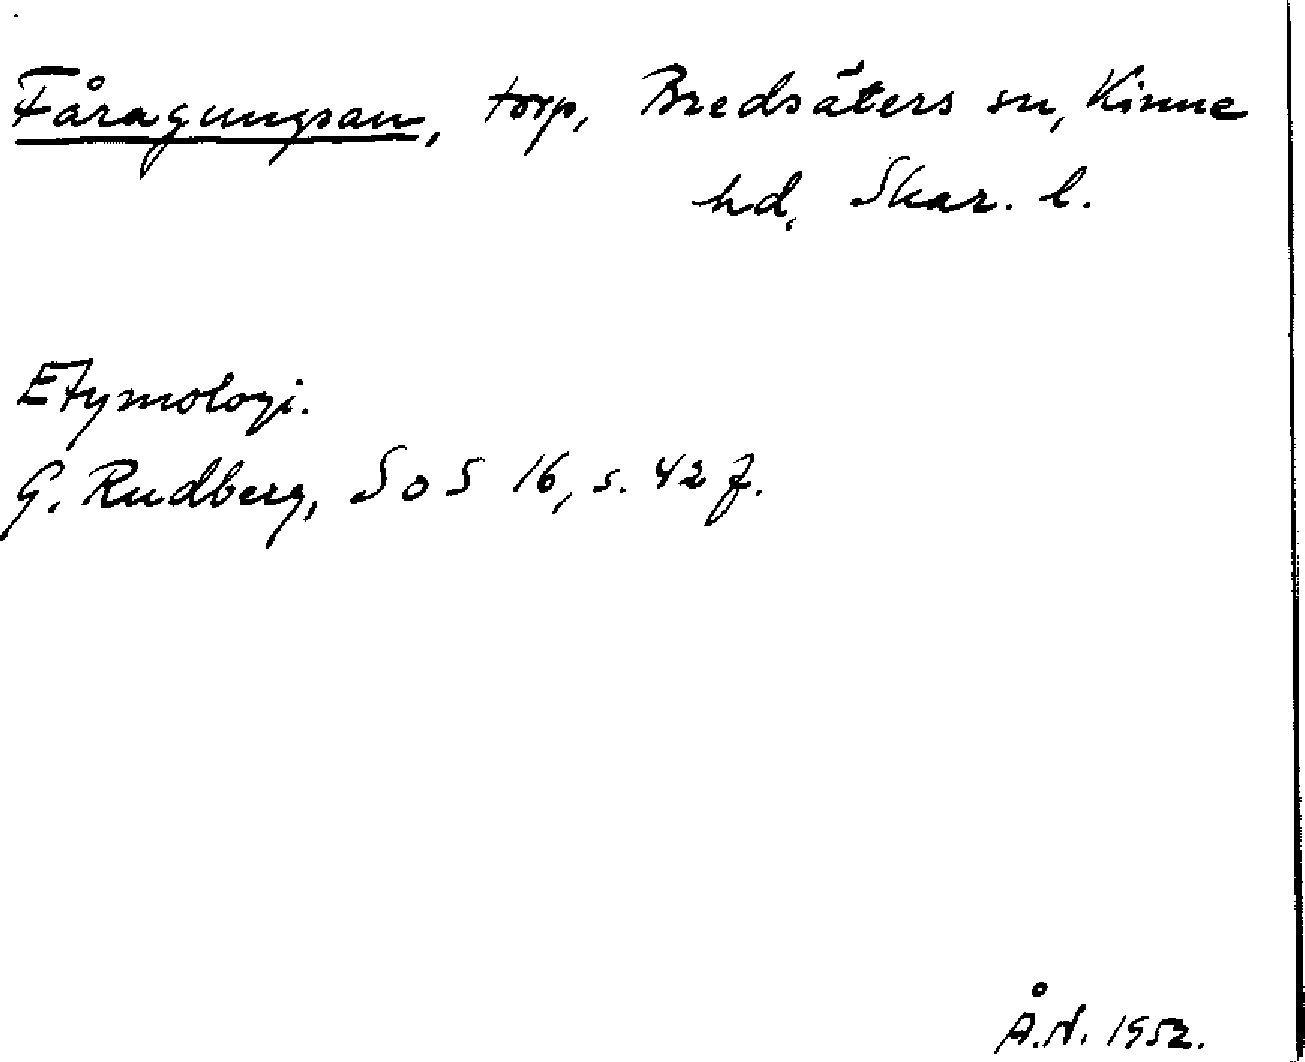 Fåragungsan, torp, Bredsäters sn, Kinne
hd, Skar. l.
Etymologi.
G. Rudberg, SoS 16, s. 42 f.
Å.N. 1952.